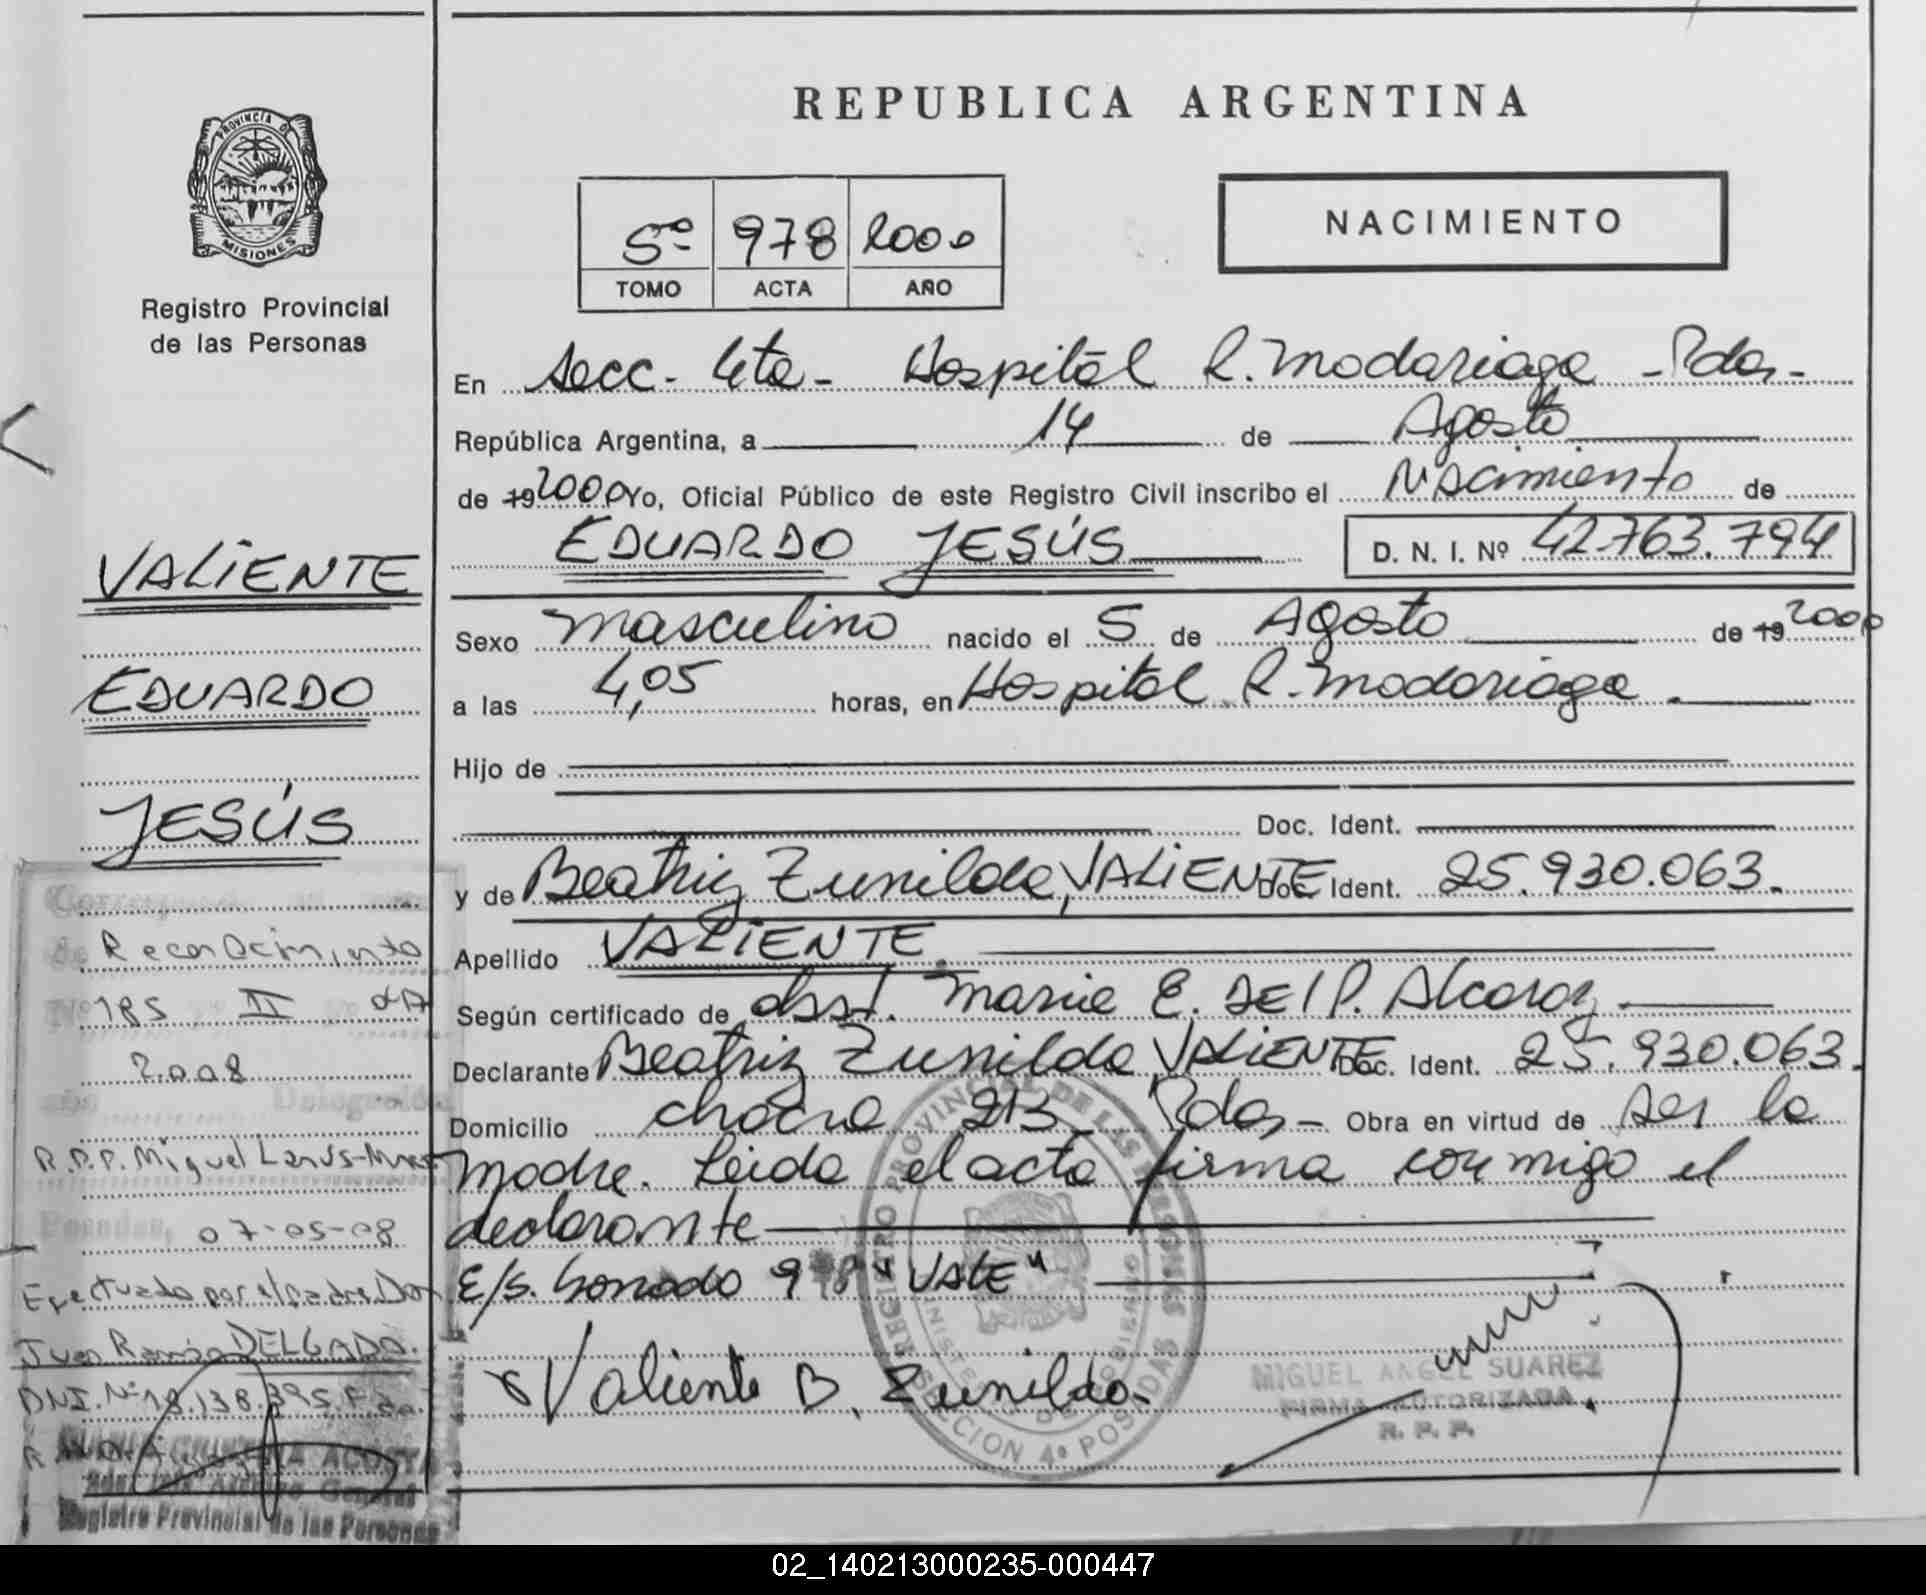 REPUBLICA ARGENTINA
PROVINCIA D
MISIONES
Registro Provincial
de las Personas
5º 978 2000
TOMO ACTA AÑO
NACIMIENTO
En Secc. 4ta - Hospital R. Madariaga - Pdas -
República Argentina, a 14 de Agosto
de 19 2000 Yo, Oficial Público de este Registro Civil inscribo el Nacimiento de
EDUARDO JESÚS D. N. I. Nº 42.763.794
Sexo masculino nacido el 5 de Agosto de 19 2000
a las 4,05 horas, en Hospital R. Madariaga.
Hijo de
Doc. Ident.
y de Beatriz Zunilda, VALIENTE Doc. Ident. 25.930.063.
Apellido VALIENTE.
Según certificado de obst. Marie E. DE P. Alcaraz
Declarante Beatriz Zunilda VALIENTE Doc. Ident. 25.930.063.
Domicilio chacra 213 Pdas - Obra en virtud de ser la
madre. Leida el acta firma conmigo el
declarante
E/S. borrado 978 "VALE"
Valiente B. Zunilda.
REGISTRO PROVINCIAL DE LAS PERSONAS
MINISTERIO DE GOBIERNO
SECCION 4ª POSADAS
MIGUEL ANGEL SUAREZ
FIRMA AUTORIZADA
R. P. P.
VALIENTE
EDUARDO
JESÚS
Corresponde
de Reconocimiento
Nº 185 II
2.008
año Delegación
R.P.P. Miguel Lanús-Mnes
Posadas, 07-05-08
Efectuado por el padre Don
Juan Ramón DELGADO.
DNI. Nº 18.138.395.
ACOSTA
Archivo General
Registro Provincial de las Personas
02_140213000235-000447